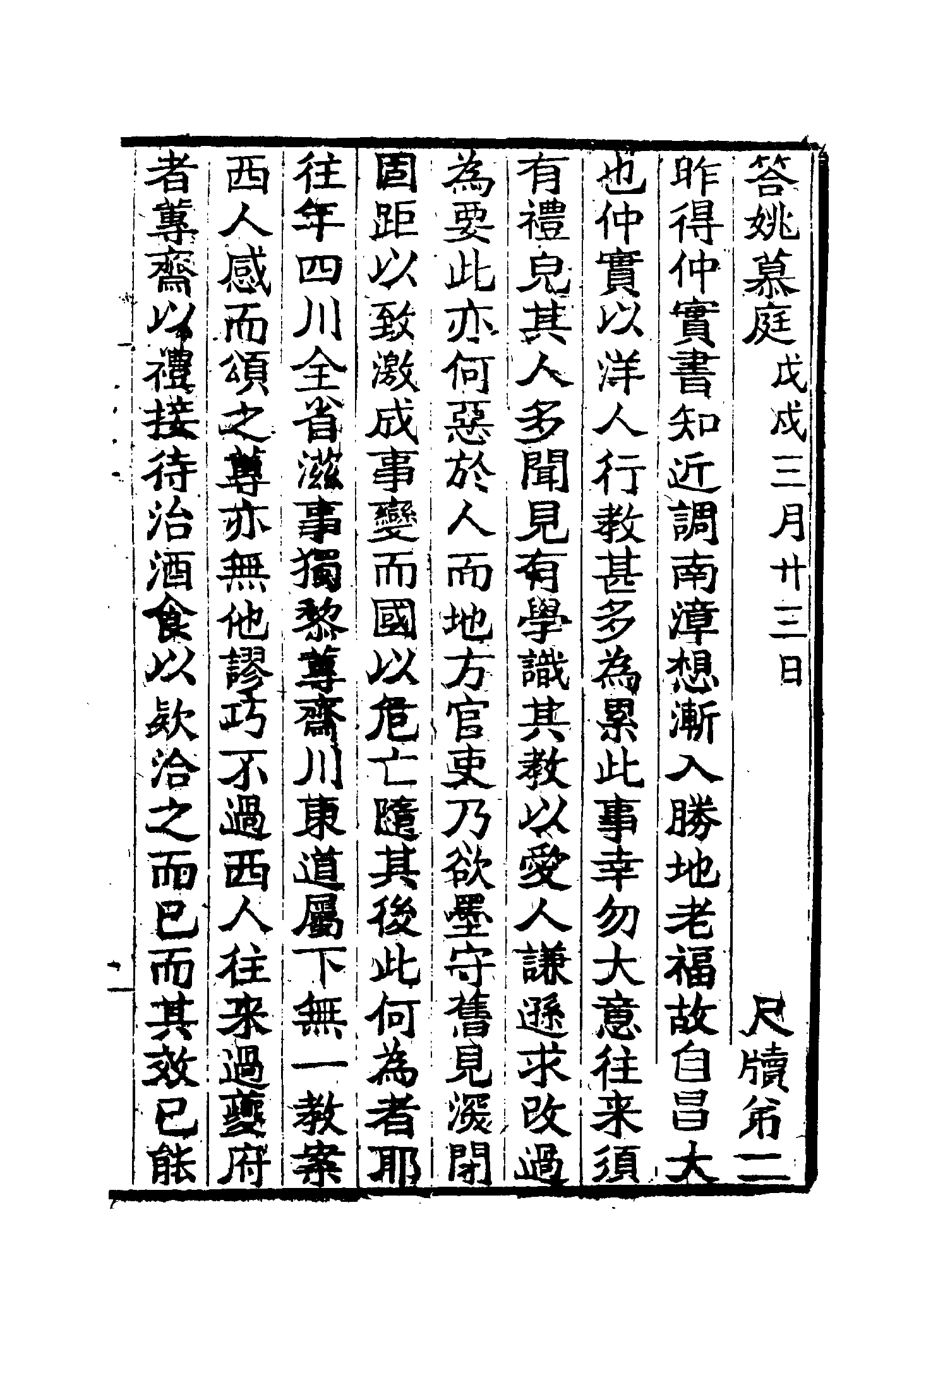 答姚慕庭 戊戌三月廿三日 尺牘弟二
昨得仲實書知近調南漳想漸入勝地老福故自昌大
也仲實以洋人行教甚多為累此事幸勿大意往来須
有禮皃其人多聞見有學識其教以愛人謙遜求改過
為要此亦何惡於人而地方官吏乃欲墨守舊見深閉
固距以致激成事變而國以危亡隨其後此何為者耶
往年四川全省滋事獨黎蓴齋川東道屬下無一教案
西人感而頌之蓴亦無他謬巧不過西人往来過夔府
者蓴齋以禮接待治酒食以欵洽之而已而其效已能